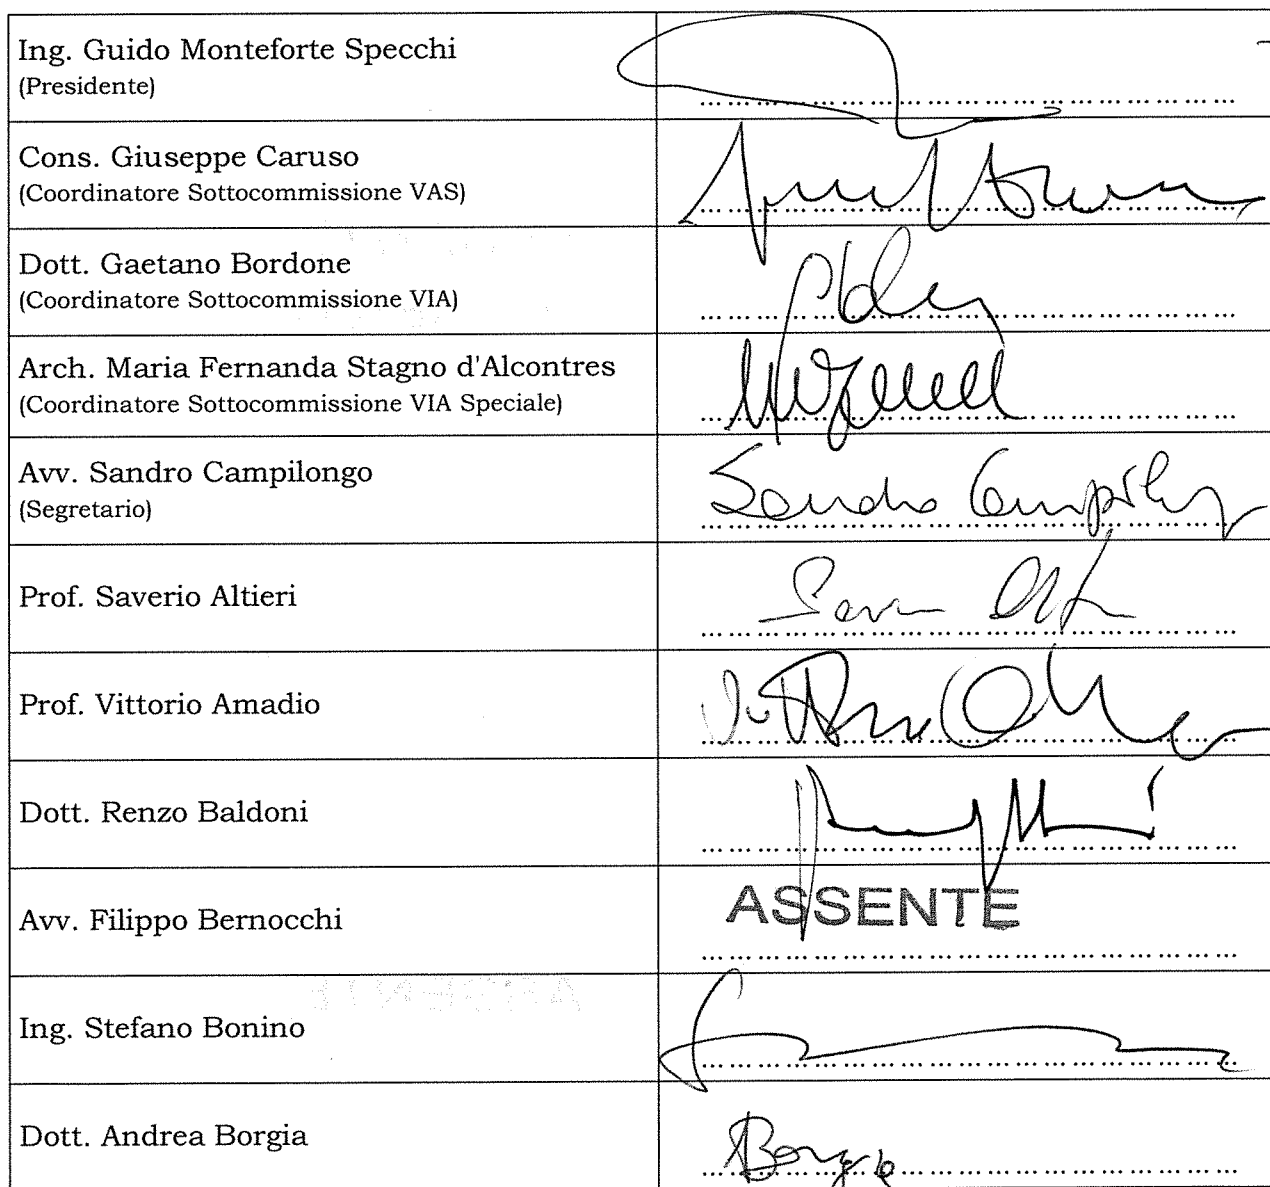 Ing. Guido Monteforte Specchi
(Presidente)
Cons. Giuseppe Caruso
(Coordinatore Sottocommissione VAS)
Dott. Gaetano Bordone
(Coordinatore Sottocommissione VIA)
Arch. Maria Fernanda Stagno d'Alcontres
(Coordinatore Sottocommissione VIA Speciale)
Avv. Sandro Campilongo
(Segretario)
Sandro Campilongo
Prof. Saverio Altieri
Prof. Vittorio Amadio
Dott. Renzo Baldoni
Avv. Filippo Bernocchi
ASSENTE
Ing. Stefano Bonino
Dott. Andrea Borgia
Borgia